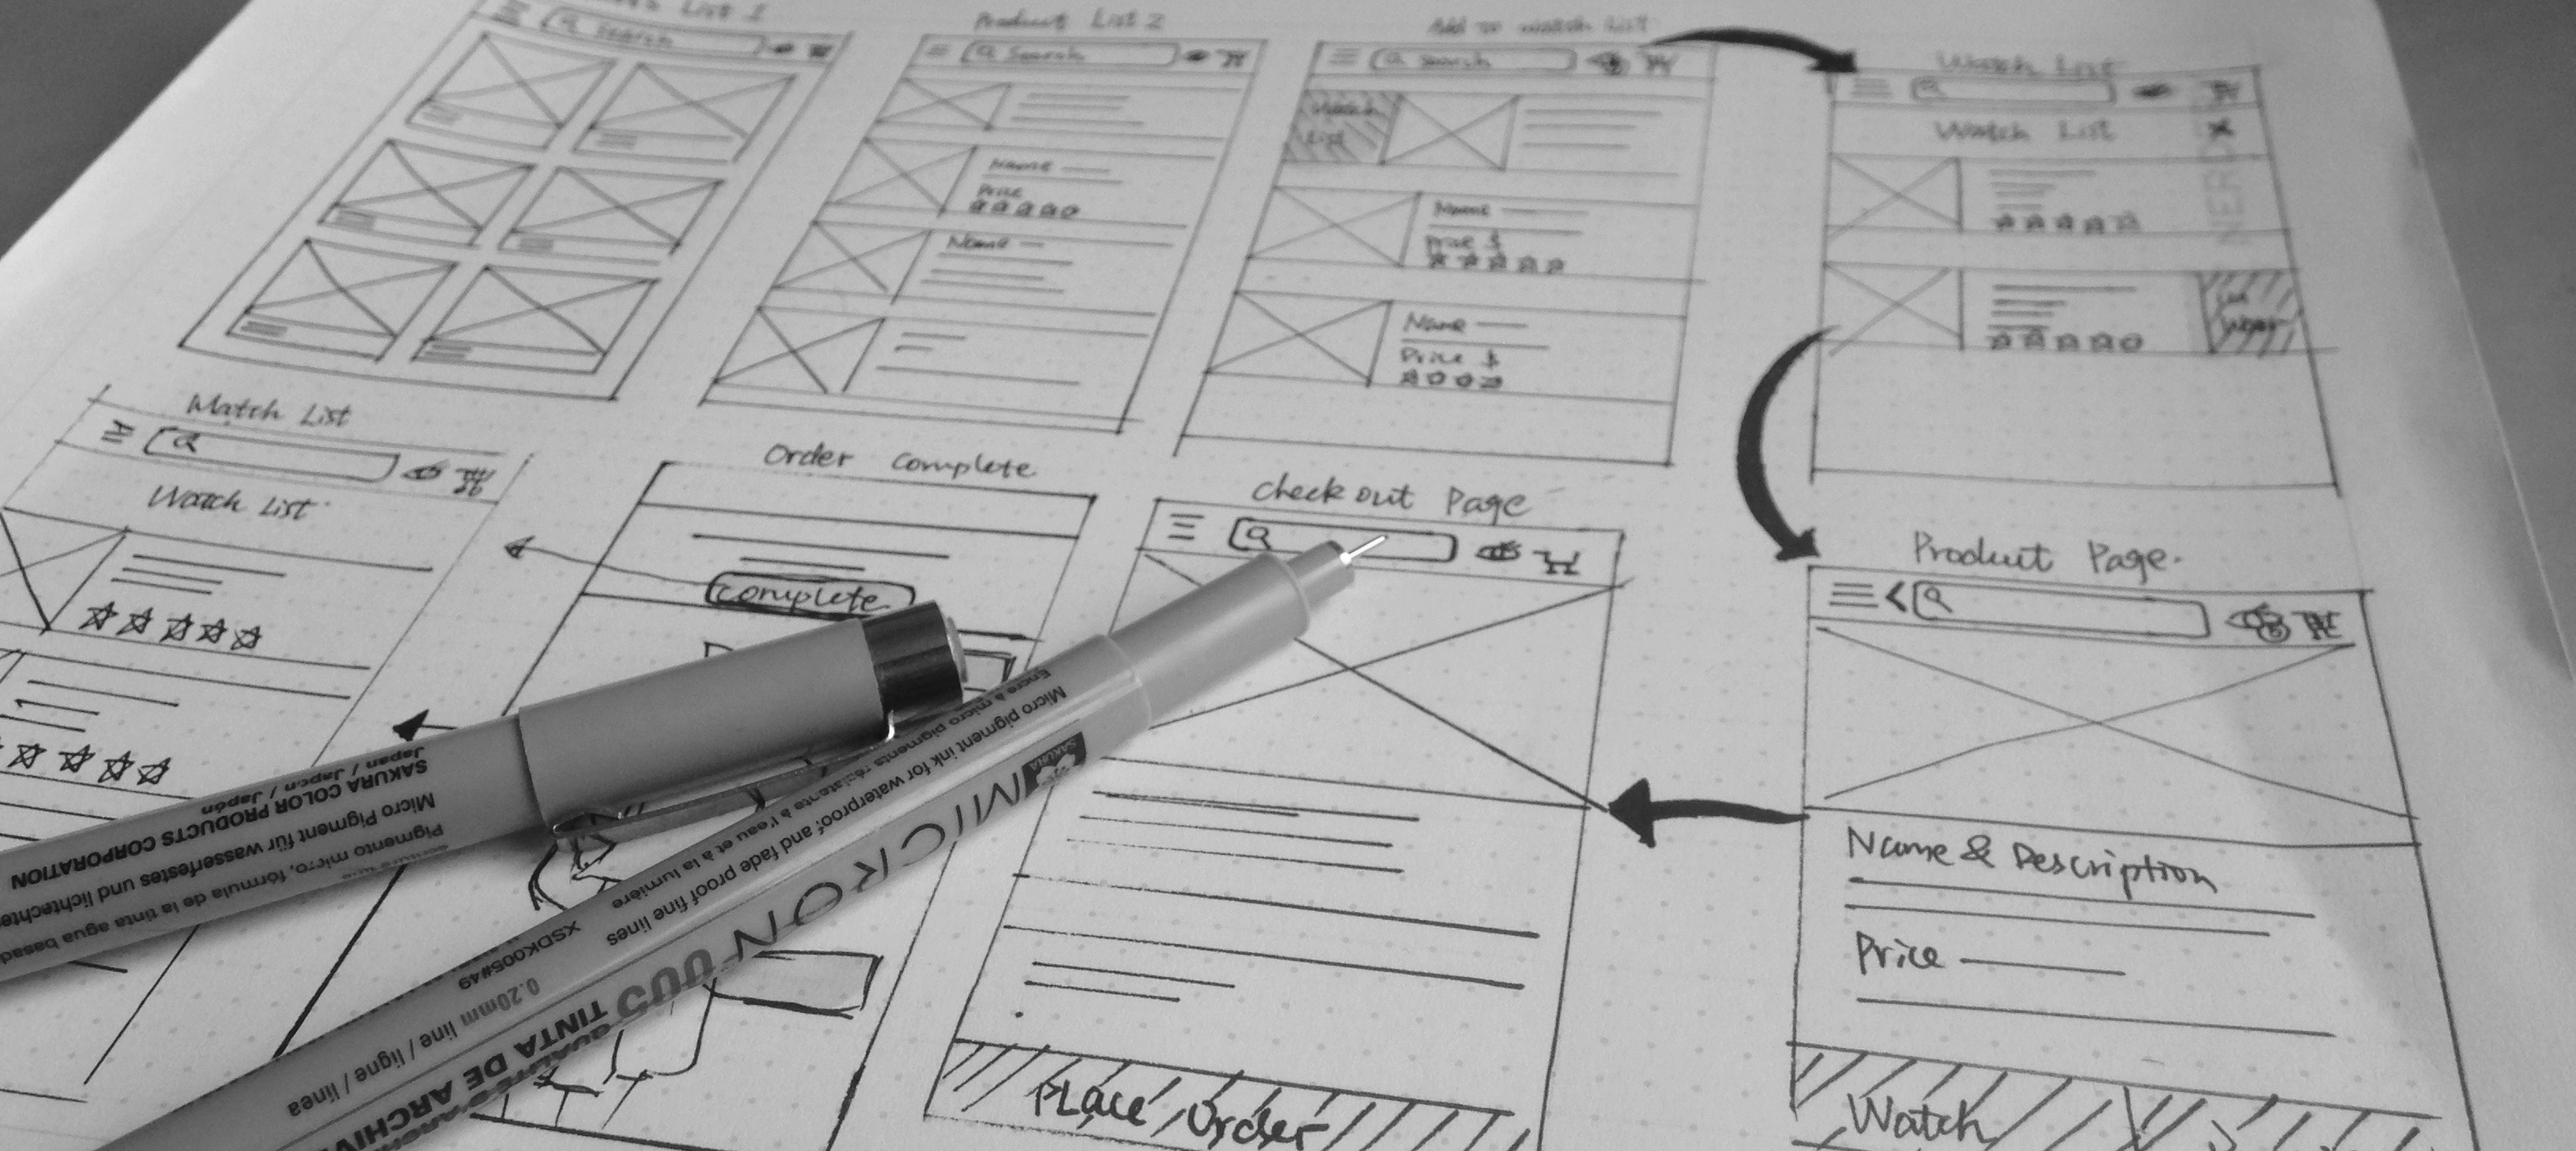 List 1
Search
Product List 2
Search
Name
Price
Name
Add to watch List
Search
Watch
List
Name
Price $
Name
Price $
Watch List
Watch List
Match List
Watch List
Order Complete
Complete
Check out Page
Place Order
Product Page.
Name & Description
Price
Watch
SAKURA COLOR PRODUCTS CORPORATION
Japan / Japon / Japón
Micro Pigment für wasserfestes und lichtechte
Pigmento micro, fórmula de la tinta agua basad
SAKURA
MICRON 005
Micro pigment ink for waterproof and fade proof fine lines
Encre à micro pigments résistante à l'eau et à la lumière
XSDK005#49
0.20mm line / ligne / línea
TINTA DE ARCHIV